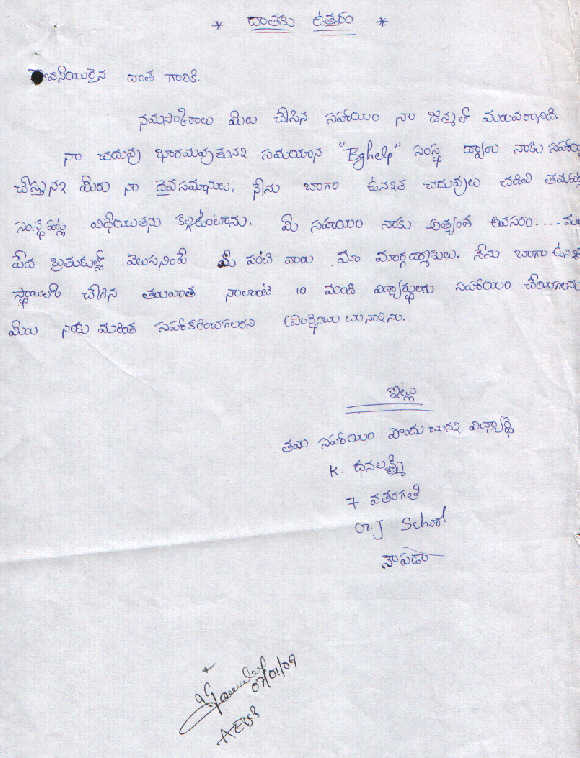 * దాతకు ఉత్తరం *
గౌరవనీయులైన దాత గారికి.
నమస్కారాలు మీరు చేసిన సహాయం నా జన్మలో మరువలేనిది.
నా చదువు భారమవుతున్న సమయాన "Eghelp" సంస్థ ద్వారా నాకు సహాయం
చేస్తున్న మీరు నా దైవసమానులు. నేను బాగా ఉన్నత చదువులు చదివి తమకు,
సంస్థ పట్ల విధేయతను కల్గిఉంటాను. మీ సహాయం నాకు అత్యంత అవసరం....
పేద బ్రతుకుల్లో వెలుగునింపే మీ వంటి వారు మా మార్గదర్శకులు. నేను బాగా ఉన్నత
స్థాయికి చేరిన తరువాత నాలాంటి 10 మంది విద్యార్థులకు సహాయం చేయగలను
మీరు నాకు మరింత సహకరించగలరని ప్రార్థిస్తున్నాను.
ఇట్లు
తమ సహాయం పొందుచున్న విద్యార్థి
K. ధనలక్ష్మి
7 వతరగతి
School
07/01/09